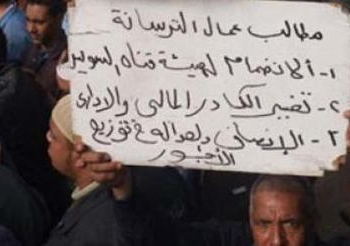 مطالب عمال الترسانة
١- الانضمام لهيئة قناة السويس
٢- تغيير الكادر المالى والادارى
٣- الإنصاف والعداله فى توزيع
الأجور